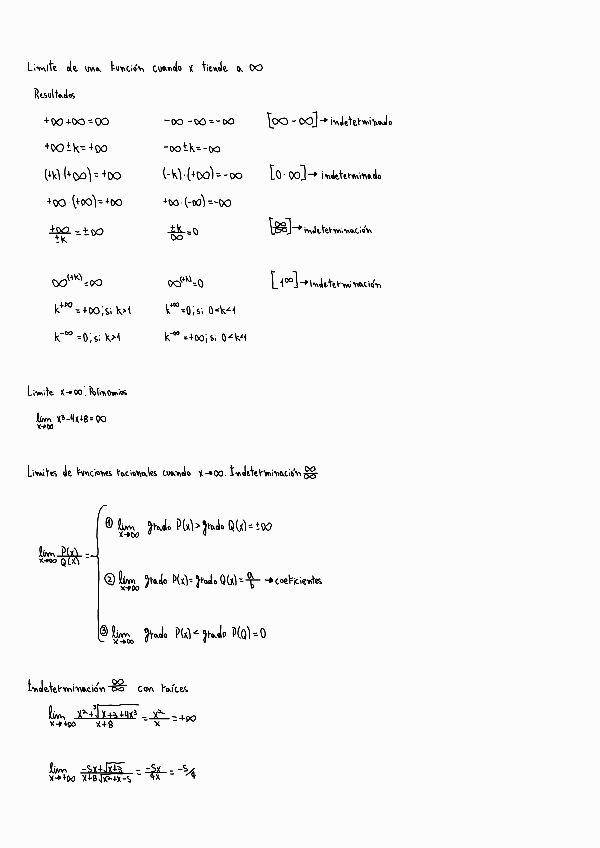 Limite de una función cuando x tiende a ∞
Resultados
+∞+∞=∞   -∞-∞=-∞   [∞-∞]→indeterminado
+∞±k=+∞   -∞±k=-∞
(+k)(+∞)=+∞   (-k)·(+∞)=-∞   [0·∞]→ indeterminado
+∞·(+∞)=+∞   +∞·(-∞)=-∞
+∞/±k = ±∞   ±k/∞ =0   [∞/∞]→indeterminación
∞^(+k)=∞   ∞^(-k)=0   [1^∞]→indeterminación
k^+∞ =+∞; si k>1   k^+∞ =0; si 0<k<1
k^-∞ =0; si k>1   k^-∞ =+∞; si 0<k<1
Limite x→∞. Polinomios
lim x→∞ x³-4x+8=∞
Limites de funciones racionales cuando x→∞. Indeterminación ∞/∞
① lim x→∞ grado P(x)>grado Q(x)=±∞
lim x→∞ P(x)/Q(x) =
② lim x→∞ grado P(x)=grado Q(x)= a/b →coeficientes
③ lim x→∞ grado P(x)< grado P(Q)=0
Indeterminación ∞/∞ con raíces
lim x→+∞ x²+³√x+3+4x³ / x+8 = x²/x =+∞
lim x→+∞ -5x+√x+3 / x+8√x²+x-5 = -5x/9x = -5/9